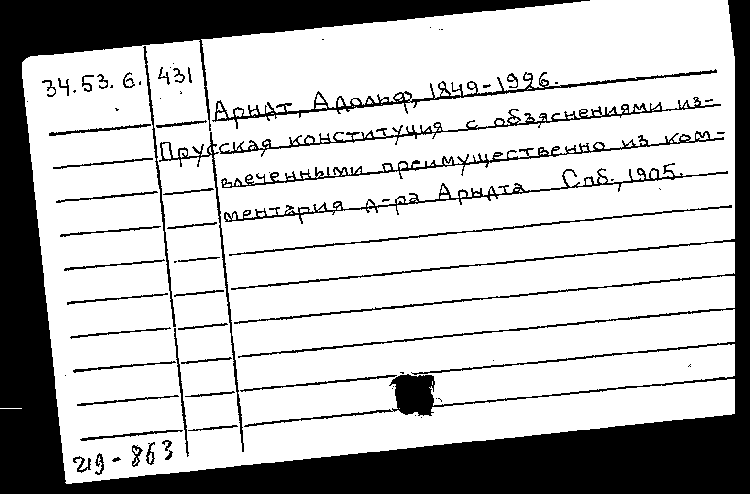 34.53.6. 431
Арндт, Адольф, 1849-1926.
Прусская конституция с объяснениями из-
влеченными преимущественно из ком-
ментария д-ра Арндта Спб., 1905.
219-863